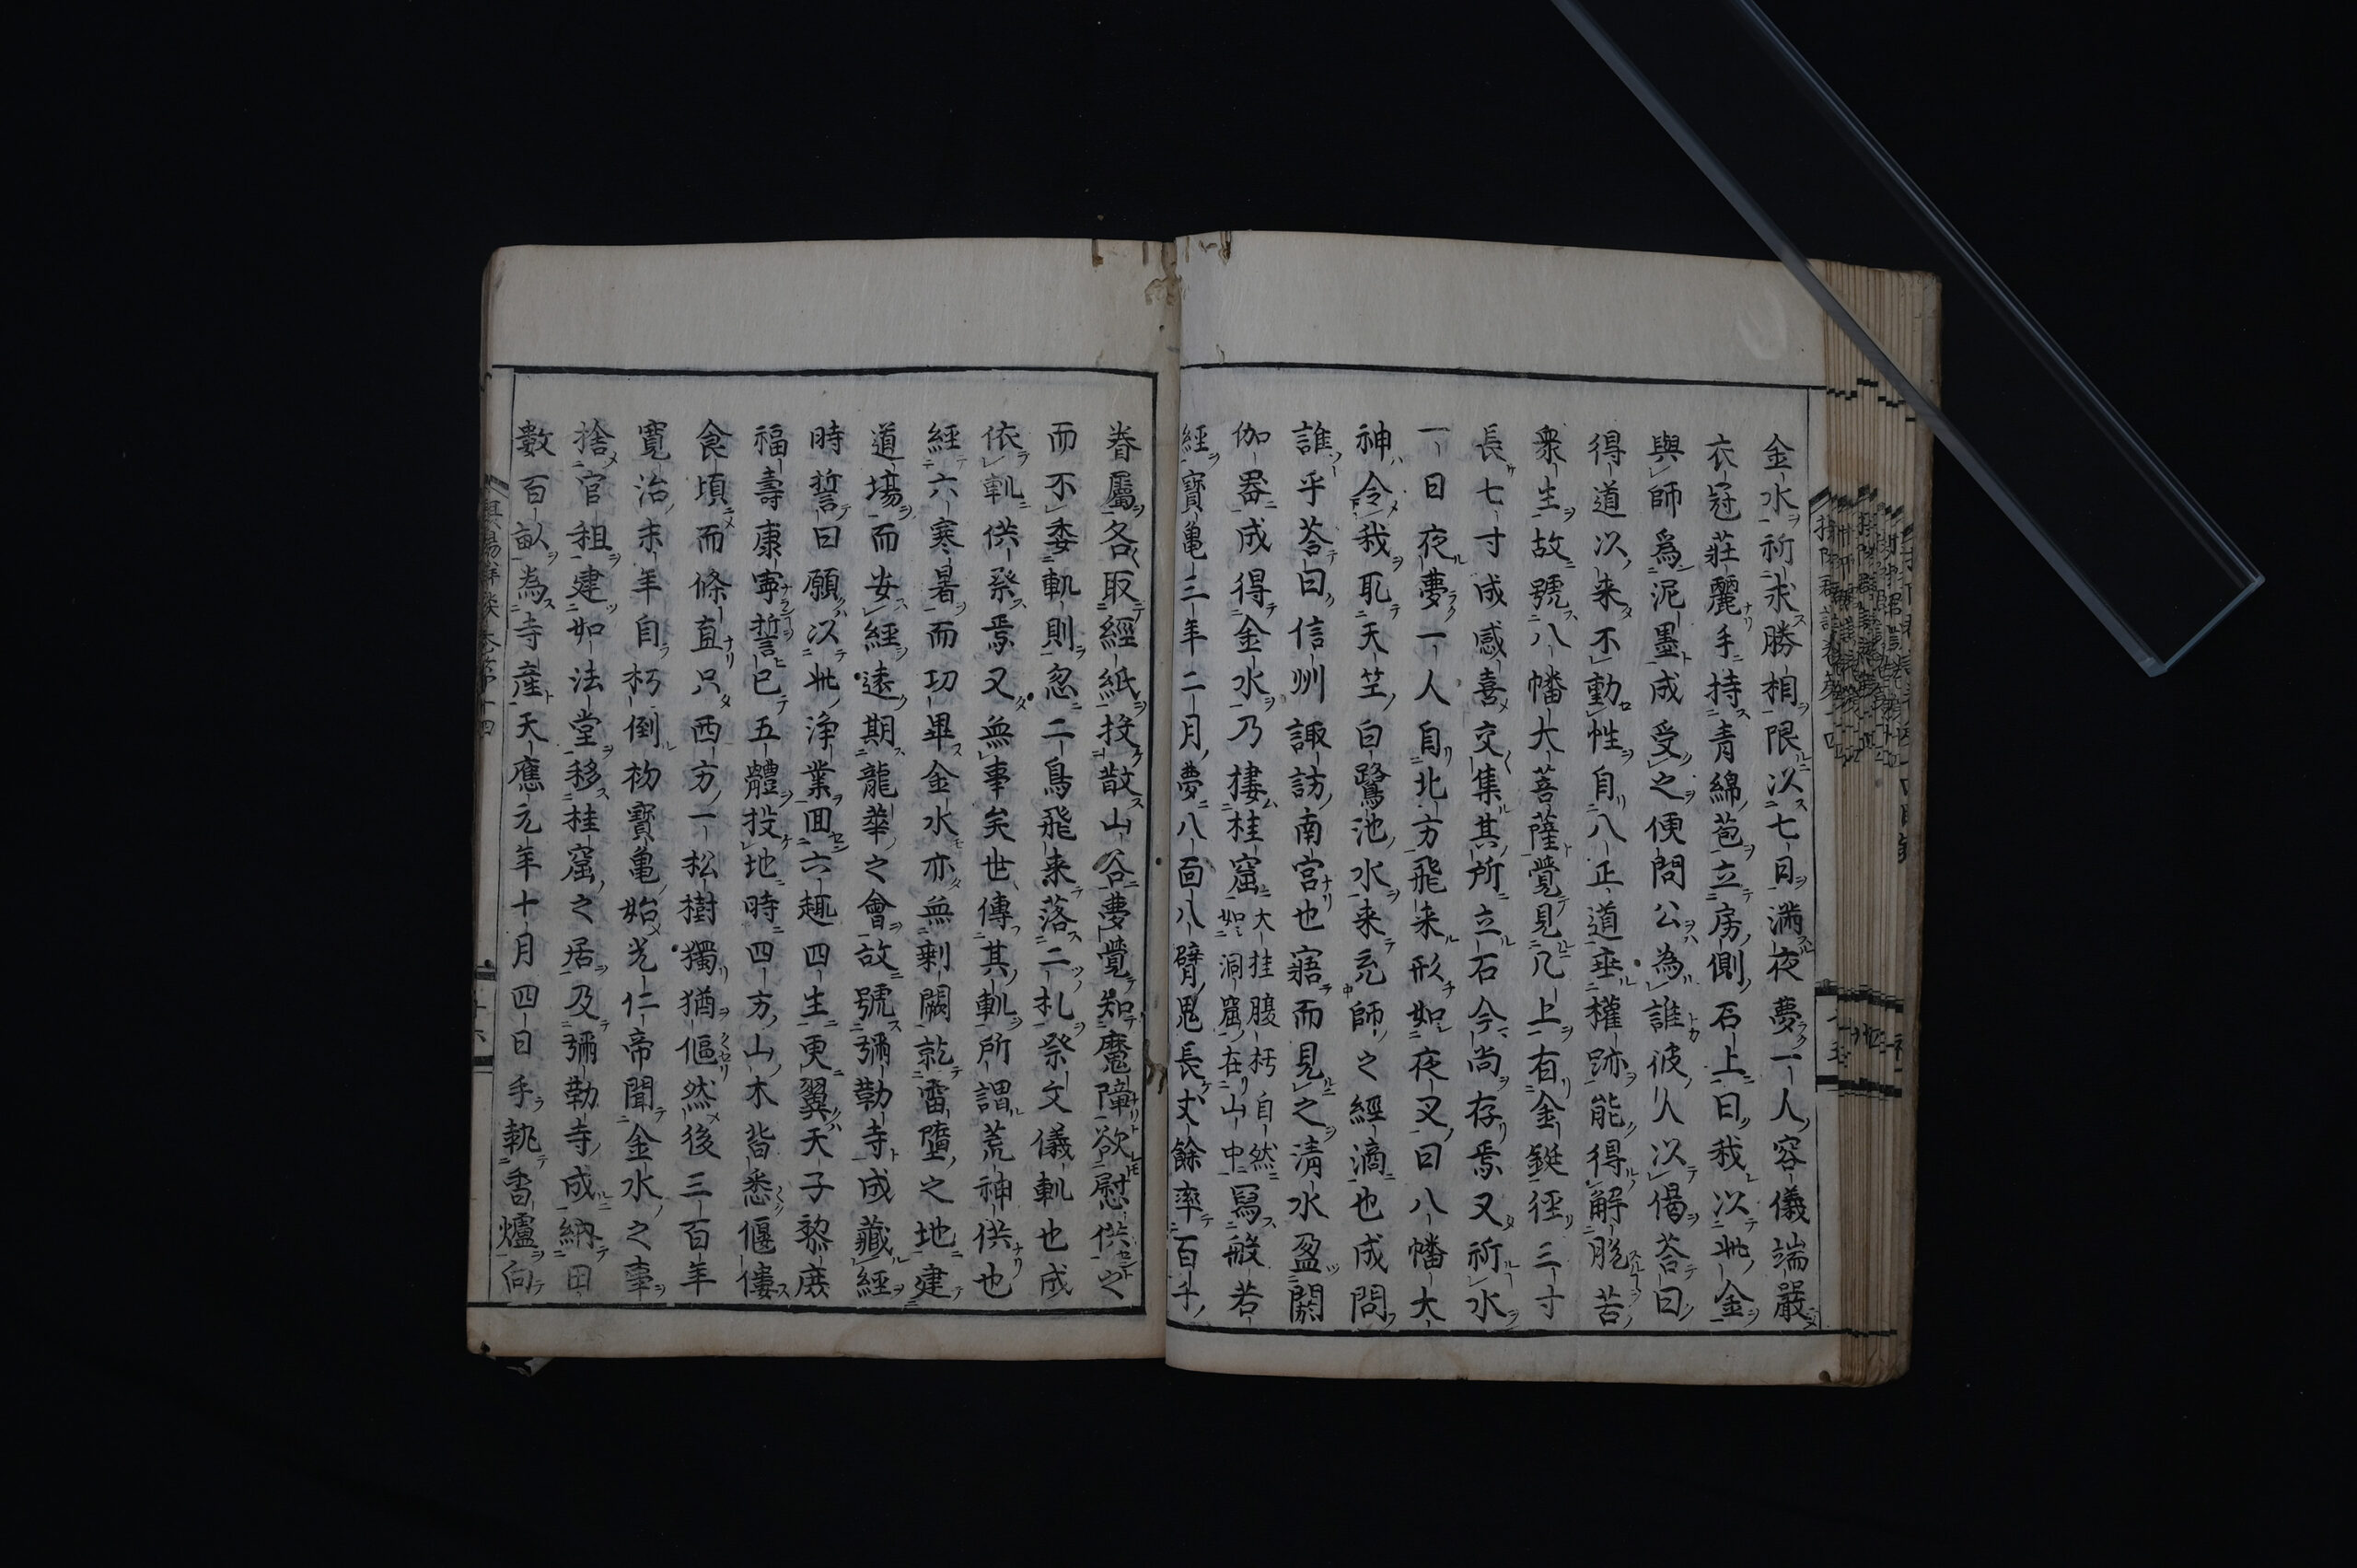 金水祈求勝相限以七日滿夜夢一人容儀端嚴
衣冠莊麗手持青綿苞立房側石上曰我以此金
與師爲泥墨成受之便問公為誰彼人以偈荅曰
得道以来不動性自八正道垂權跡能得解脫苦
衆生故號八幡大菩薩覺見几上有金鋌径三寸
長七寸成感喜交集其所立石今尚存焉又祈水
一日夜夢一人自北方飛来形如夜叉曰八幡大
神令我取天竺白鷺池水来充師之經滴也成問
誰乎荅曰信州諏訪南宮也寤而見之淸水盈閼
伽器成得金水乃棲桂窟大桂腹朽自然如洞窟在山中冩般若
經寶亀三年二月夢八面八臂鬼長丈餘率百千
眷屬各取經紙投散山谷夢覺知魔障欲慰供之
而不委軌則忽二鳥飛来落二札祭文儀軌也成
依軌供祭焉又無事矣世傳其軌所謂荒神供也
經六寒暑而功畢金水亦無剰闕乾畨壇之地建
道場而安經遠期龍華之會故號彌勒寺成藏經
時誓曰願以此浄業囬六趣四生更翼天子黎庶
福壽康寧誓已五體投地時四方山木皆悉偃僂
食頃而條直只西方一松樹獨猶傴然後三百年
寛治末年自朽倒初寶亀始光仁帝聞金水之事
捨官租建如法堂移桂窟之居及彌勒寺成納田
數百畝為寺産天應元年十月四日手執香爐向